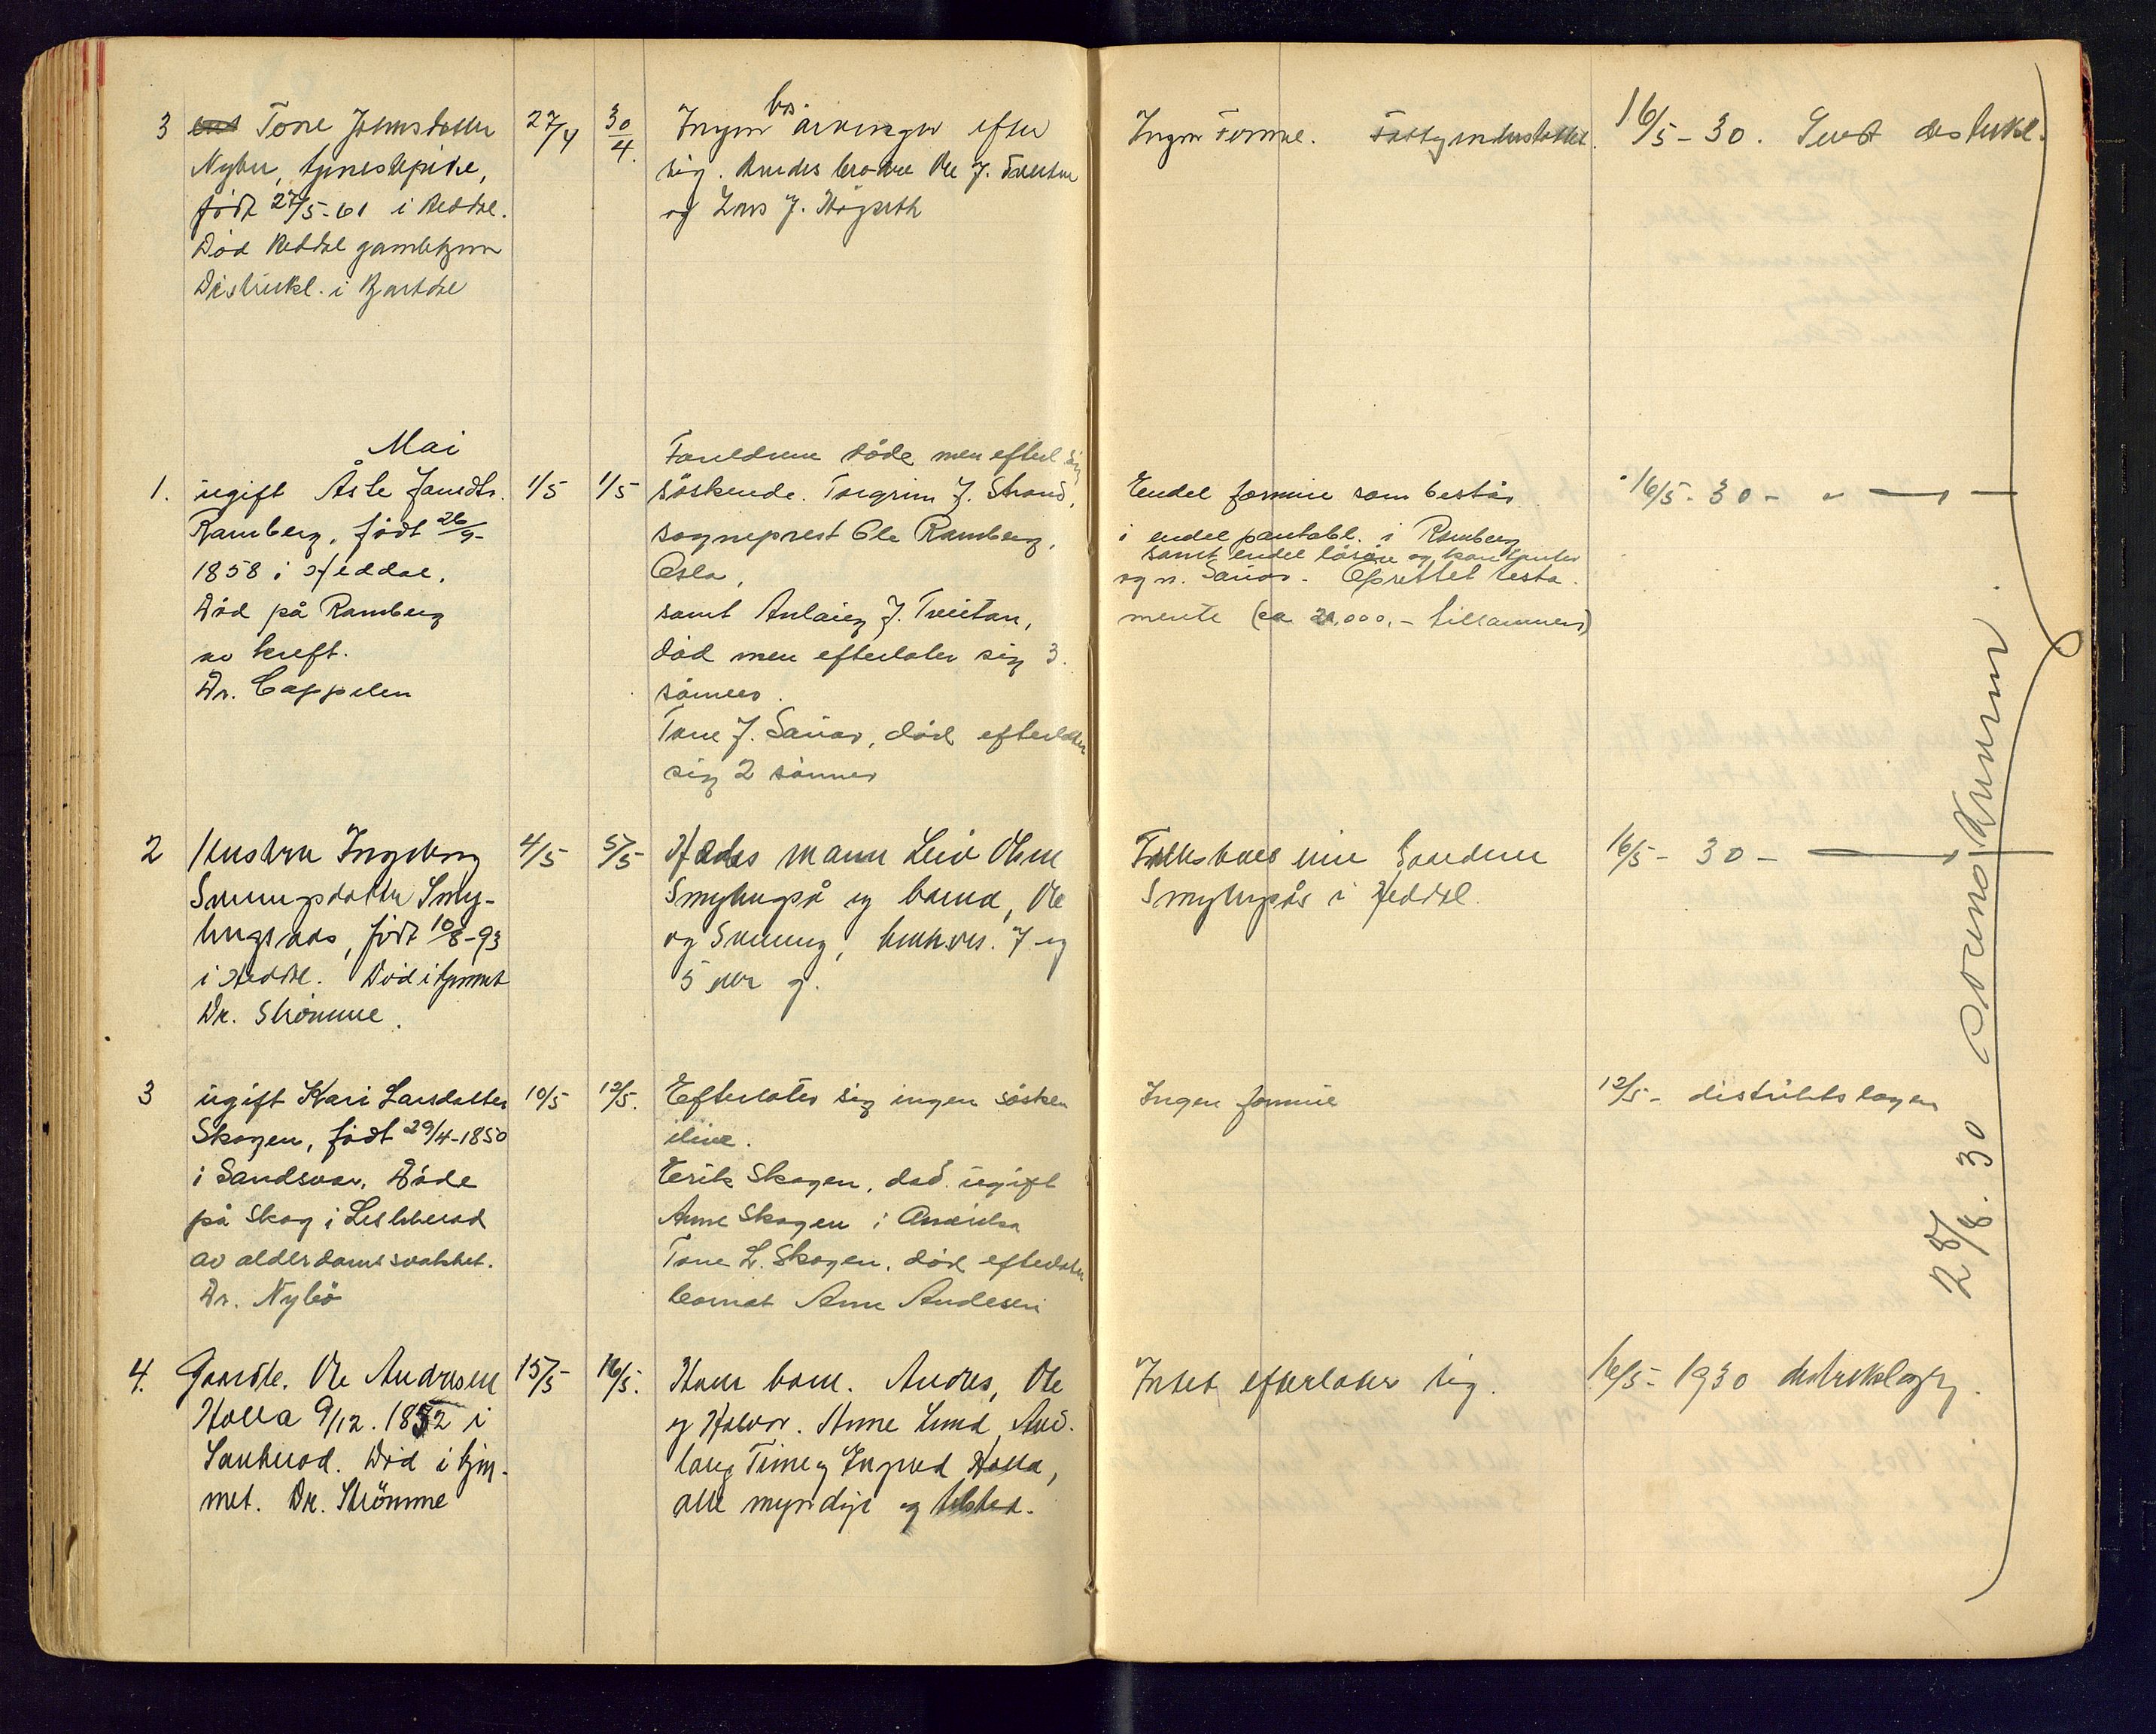 3 Tone Johnsdatter 27/4 30/4. Ingen livs arvinger efter Ingen Formue. Fattigunderstøttet. 16/5-30. Sendt distrikl.
Nybu, tjenestepike, sig.
født 27/5-61 i Heddal. og Lars J.
Død Heddal gamlehjem
Distriktl. i Hjartdal
Mai
Foreldrene døde men efterl. sig
1. ugift Åste Jansdtr. 1/5 1/5 søskende. Torgrim J. Strand, Endel formue som består 16/5-30-
Ramberg, født 26/9- sogneprest Ole Ramberg, i endel pantobl. i Ramberg
samt endel løsøre og kontanter
1858 i Heddal. Oslo, og n. Sanar. Oprettet testa-
Død på Ramberg samt Anlaug J. Treitan, mente (ca 20,000.- tilsammen)
av kreft. død men efterlater sig 3
Dr. Cappelen sønner.
Tone J. Sanar, død efterlater
sig 2 sønner
2 Hustru Ingeborg 4/5 5/5 Hendes mann Leiv Olsen Fellesboes eie Gaarden 16/5-30-
og barna, Ole i Heddal.
født 10/8-93 og Sveinung, henh.vis. 7 og
i Heddal. Død i hjemmet 5 aar g.
Dr. Strømme.
3 ugift Kari Larsdatter 10/5 12/5. Efterlater sig ingen søsken Ingen formue 12/5- distriktslegen
Skogen, født 29/4-1850 ilive.
i Sandsvær, Døde Erik Skogen, død. ugift
på Skog i Lisleherad Anne Skogen i Amerika
av alderdomssvakhet. Tone L. Skogen, død efterlater
Dr. Nybø barnet Anne Andesen
4. Gaardbr. Ole Andresen 15/5 16/5. Hans barn. Andres, Ole Intet efterlater sig. 16/5-1930 distriktslegen.
Holla 9/12.1852 i og Halvor. Anne Lund, Aas-
Sauherad. Død i hjem- laug Tinne og Ingrid Holla,
met. Dr. Strømme alle myndige og tilsted.
28/8.30